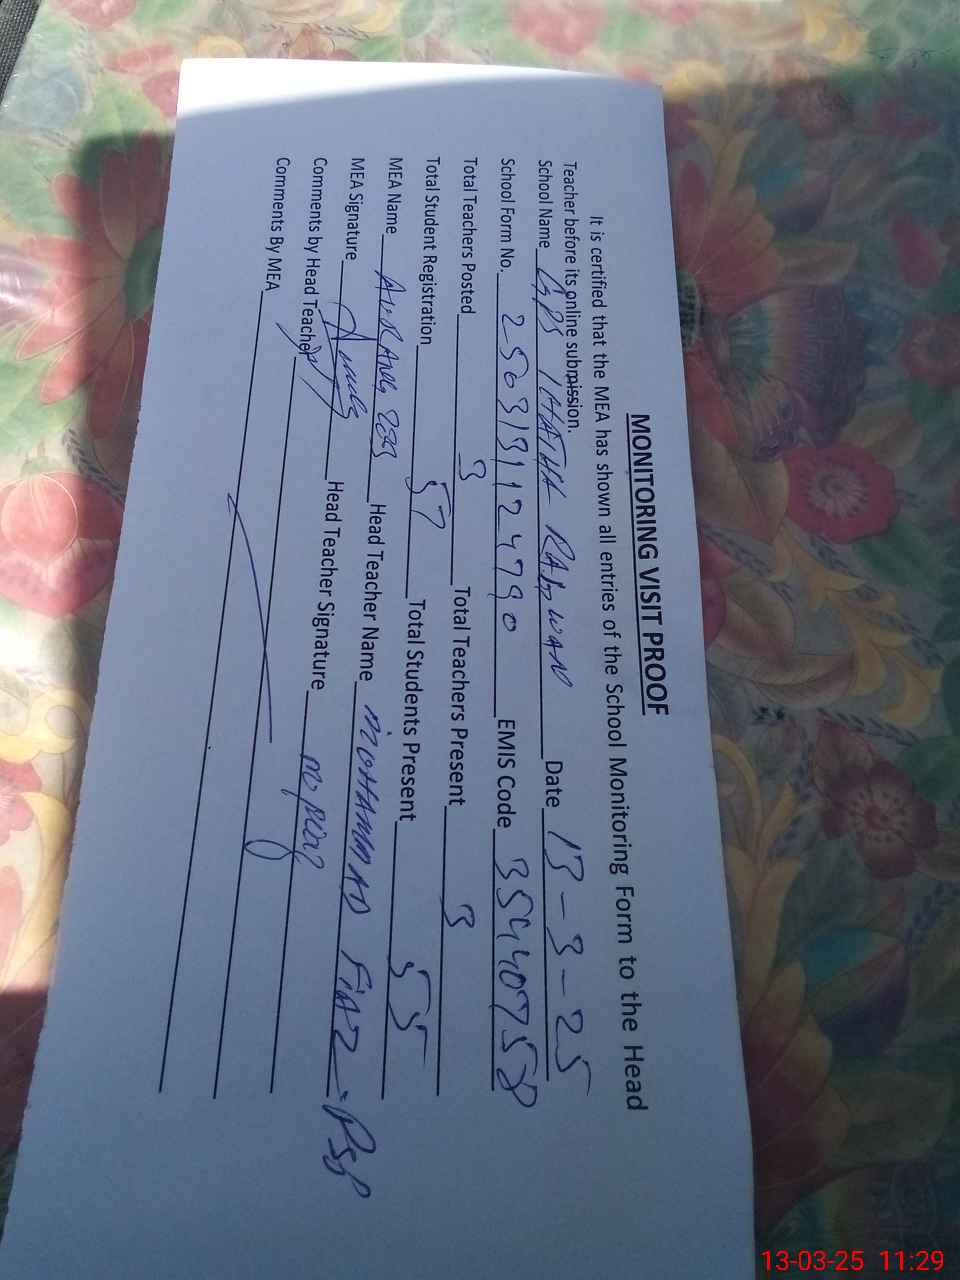 MONITORING VISIT PROOF
It is certified that the MEA has shown all entries of the School Monitoring Form to the Head
Teacher before its online submission.
School Name GPS Date 13-3-25
School Form No. 2503131124790 EMIS Code 35440758
Total Teachers Posted 3 Total Teachers Present 3
Total Student Registration 57 Total Students Present 55
MEA Name Head Teacher Name MUHAMMAD FIAZ - PSP
MEA Signature Head Teacher Signature
Comments by Head Teacher
Comments By MEA
13-03-25 11:29